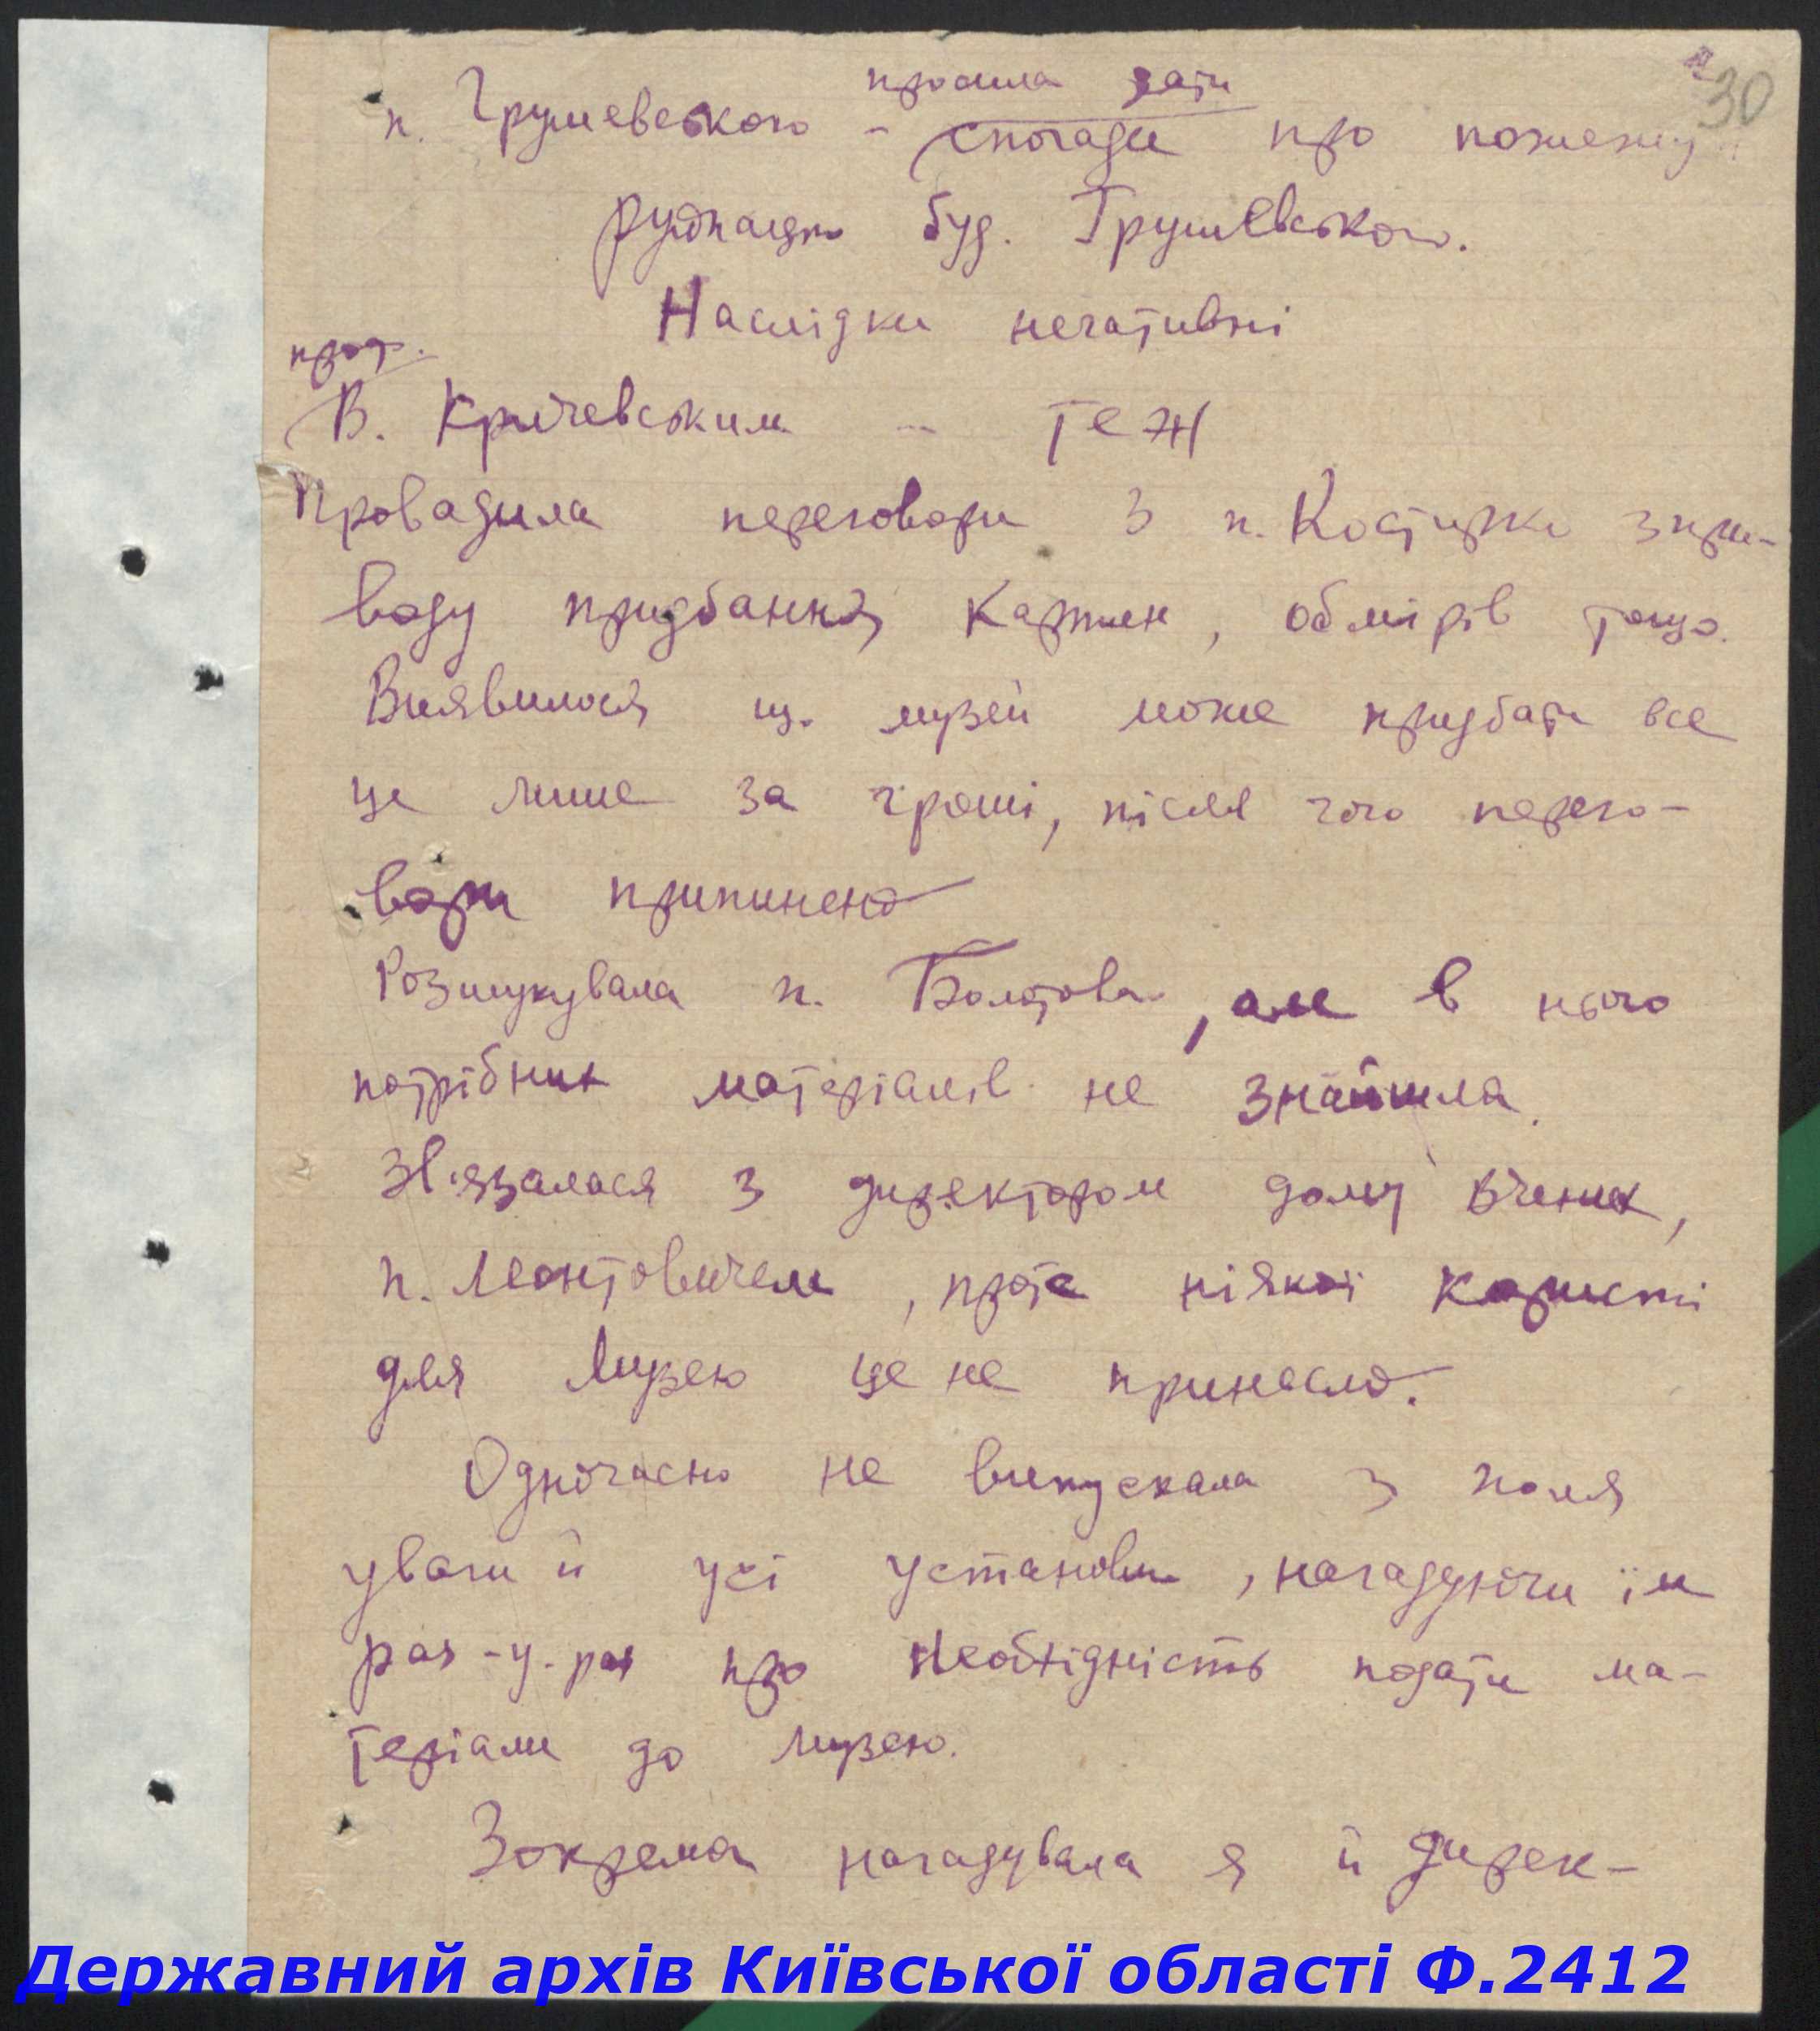 30
просила дати
п. Грушевського - спогади про пожежу
буд. Грушевського.
Наслідки негативні
проф.
В. Кричевським - теж
Провадила переговори з п. Костирко з при-
воду придбання картин, обмірів тощо.
Виявилося що музей може придбати все
це лише за гроші, після чого перего-
вори припинено
Розшукувала п. Болотова, але в нього
потрібних матеріалів не знайшла.
Зв'язалася з директором дому вчених,
п. Леонтовичем, проте ніякої користі
для Музею це не принесло.
Одночасно не випускала з поля
уваги й усі установи, нагадуючи їм
раз-у-раз про необхідність подати ма-
теріали до музею.
Зокрема нагадувала я й дирек-
Державний архів Київської області Ф.2412